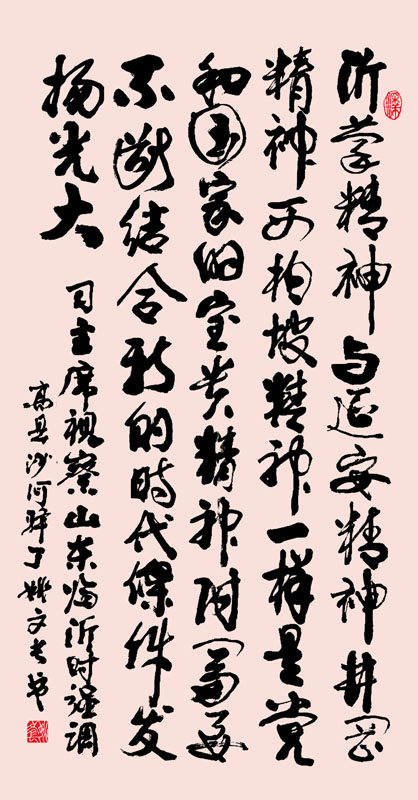 沂蒙精神与延安精神井冈
精神西柏坡精神一样是党
和国家的宝贵精神财富要
不断结合新的时代條件发
扬光大
习主席视察山东临沂时强调
高县沙河驿丁姚文书